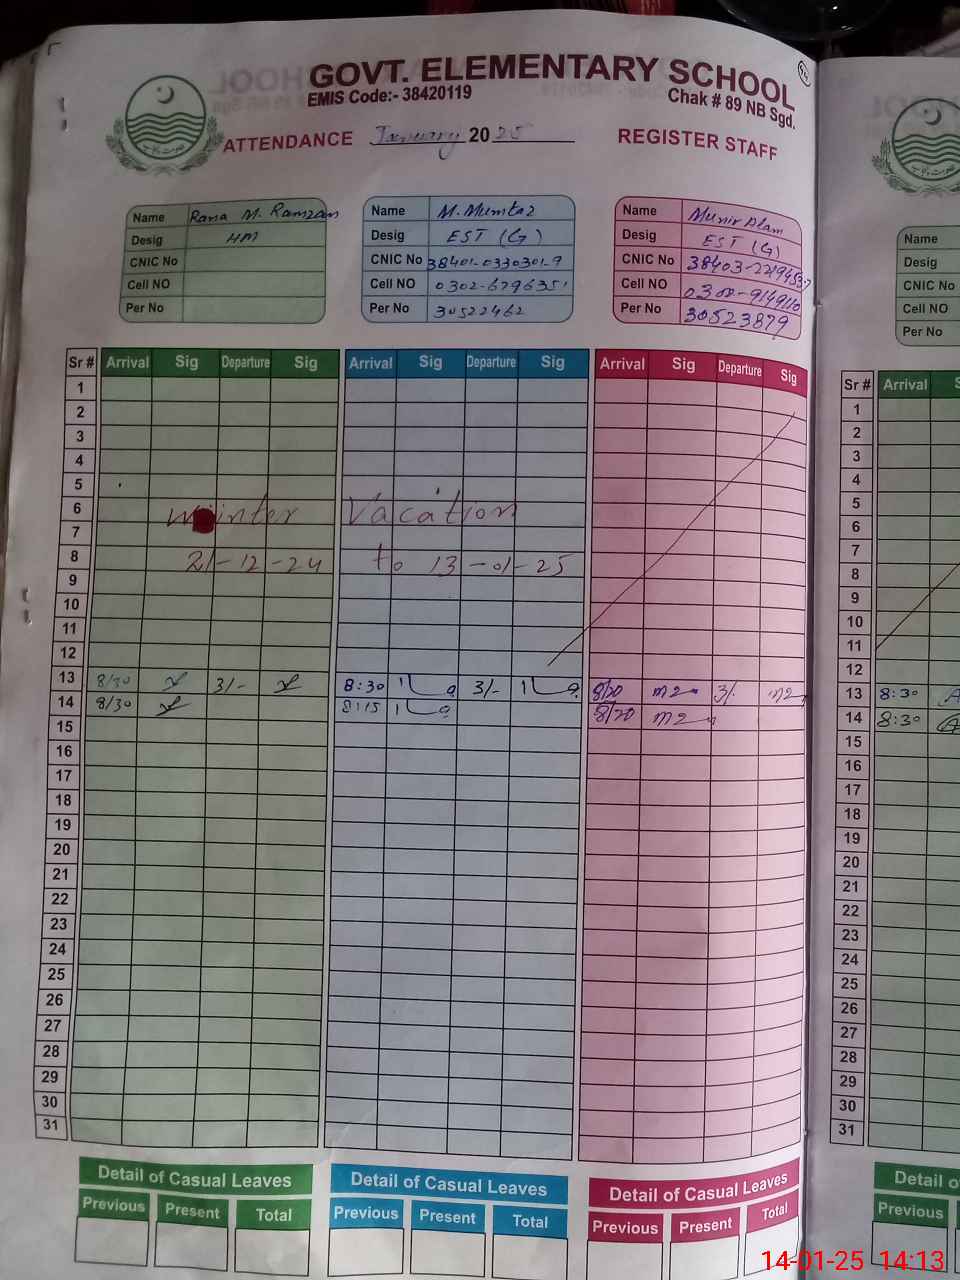 GOVT. ELEMENTARY SCHOOL
EMIS Code:- 38420119
Chak # 89 NB Sgd.
ATTENDANCE January 2025 REGISTER STAFF
Name Rana M. Ramzan
Desig HM
CNIC No
Cell NO
Per No
Name M. Mumtaz
Desig EST (G)
CNIC No 38401-0330301-9
Cell NO 0302-6796351
Per No 30522462
Name Munir Alam
Desig EST (G)
CNIC No
Cell NO
Per No 30523879
Name
Desig
CNIC No
Cell NO
Per No
Sr # Arrival Sig Departure Sig Arrival Sig Departure Sig Arrival Sig Departure Sig
1
2
3
4
5
6 Winter Vacation
7
8 21-12-24 to 13-01-25
9
10
11
12
13 8/30 3/- 8:30 3/- 8/20 3/-
14 8/30 8:15 8/20
15
16
17
18
19
20
21
22
23
24
25
26
27
28
29
30
31
Sr # Arrival
1
2
3
4
5
6
7
8
9
10
11
12
13 8:30
14 8:30
15
16
17
18
19
20
21
22
23
24
25
26
27
28
29
30
31
Detail of Casual Leaves
Previous Present Total
Detail of Casual Leaves
Previous Present Total
Detail of Casual Leaves
Previous Present Total
Detail o
Previous
14-01-25 14:13